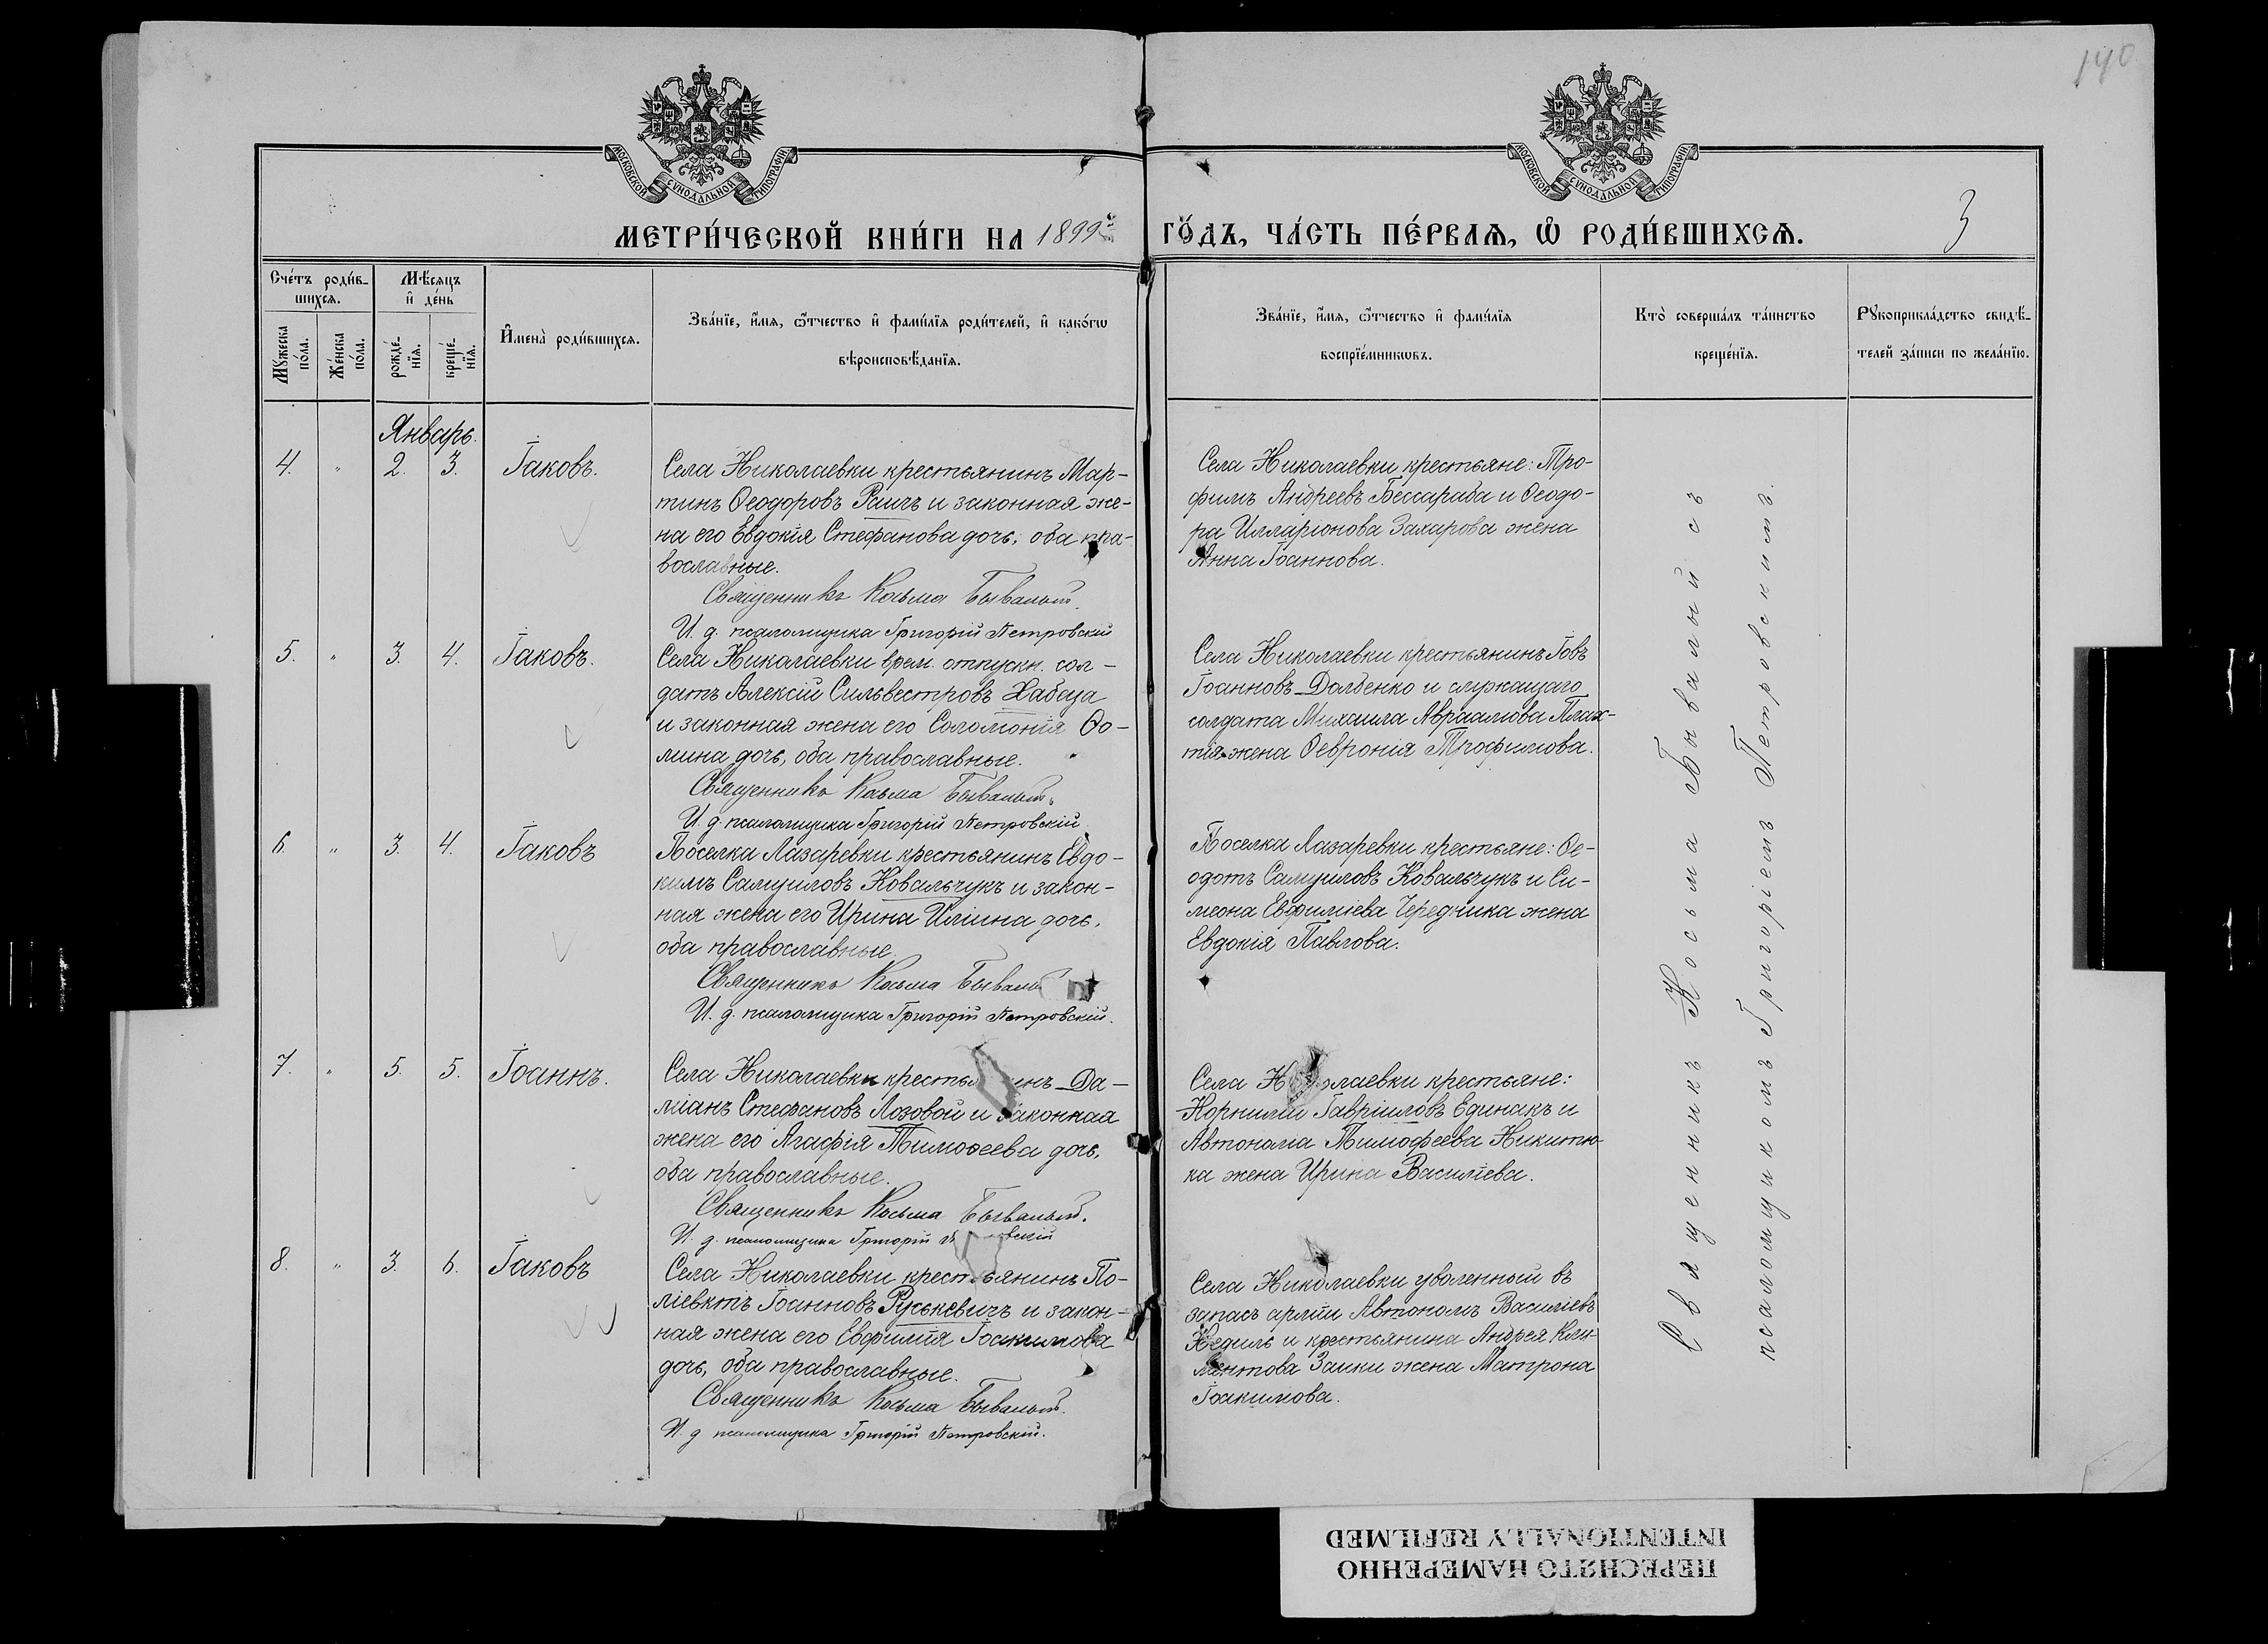 140
МОСКОВСКОЙ СѴНОДАЛЬНОЙ ТИПОГРАФІИ
МОСКОВСКОЙ СѴНОДАЛЬНОЙ ТИПОГРАФІИ
МЕТРИ́ЧЕСКОЙ КНИ́ГИ НА 1899й ГО́ДЪ, ЧА́СТЬ ПЕ́РВАѦ, Ѡ РОДИ́ВШИХСѦ.
3
Сче́тъ роди́в-
шихсѧ.
Мꙋжеска по́ла.
Же́нска по́ла.
Мѣ́сѧцъ
и҆ де́нь
рожде́-
нїѧ.
креще́-
нїѧ.
И҆мена̀ роди́вшихсѧ.
Зва́нїе, и҆́мѧ, ѻ҆́тчество и҆ фами́лїѧ роди́телей, и҆ како́гѡ
вѣроисповѣ́данїѧ.
Зва́нїе, и҆́мѧ, ѻ҆́тчество и҆ фами́лїѧ
воспрїе́мникѡвъ.
Кто̀ соверша́лъ та́инство
креще́нїѧ.
Рꙋкоприкла́дство свидѣ́-
телей за́писи по жела́нїю.
Январь.
4. " 2. 3. Іаковъ.
Села Николаевки крестьянинъ Мар-
тинъ Ѳеодоровъ Раичъ и законная же-
на его Евдокія Стефанова дочь, оба пра-
вославные.
Священникъ Косьма Бывалый.
И. д. псаломщика Григорій Петровскій
Села Николаевки крестьяне: Тро-
фимъ Андреевъ Бессараба и Ѳеодо-
ра Илларіонова Захарова жена
Анна Іоаннова.
5. " 3. 4. Іаковъ.
Села Николаевки врем. отпускн. сол-
датъ Алексій Сильвестровъ Хабаза
и законная жена его Соломонія Ѳо-
мина дочь, оба православные.
Священникъ Косьма Бывалый.
И. д. псаломщика Григорій Петровскій
Села Николаевки крестьянинъ Іовъ
Іоанновъ Долбенко и служащаго
солдата Михаила Авраамова Плах-
тія жена Ѳевронія Трофимова.
6. " 3. 4. Іаковъ
Поселка Лазаревки крестьянинъ Евдо-
кимъ Самуиловъ Ковальчукъ и закон-
ная жена его Ирина Иліина дочь,
оба православные.
Священникъ Косьма Бывалый
И. д. псаломщика Григорій Петровскій.
Поселка Лазаревки крестьяне: Ѳе-
одотъ Самуиловъ Ковальчукъ и Си-
меона Евфиміева Чередника жена
Евдокія Павлова.
7. " 5. 5. Іоаннъ.
Села Николаевки крестьянинъ Да-
міанъ Стефановъ Лозовой и законная
жена его Агафія Тимоѳеева дочь,
оба православные.
Священникъ Косьма Бывалый.
И. д. псаломщика Григорій Петровскій
Села Николаевки крестьяне:
Корнилій Гавріиловъ Единакъ и
Автонома Тимофеева Никитю-
ка жена Ирина Василіева.
8. " 3. 6. Іаковъ
Села Николаевки крестьянинъ По-
ліевктъ Іоанновъ Руськевичъ и закон-
ная жена его Евфимія Іоакимова
дочь, оба православные.
Священникъ Косьма Бывалый.
И. д псаломщика Григорій Петровскій.
Села Николаевки уволенный въ
запасъ арміи Автономъ Василіевъ
Недиль и крестьянина Андрея Кли-
ментова Заики жена Матрона
Іоакимова.
Священникъ Косьма Бывалый съ
псаломщикомъ Григоріемъ Петровскимъ.
ПЕРЕСНЯТО НАМЕРЕННО
INTENTIONALLY REFILMED